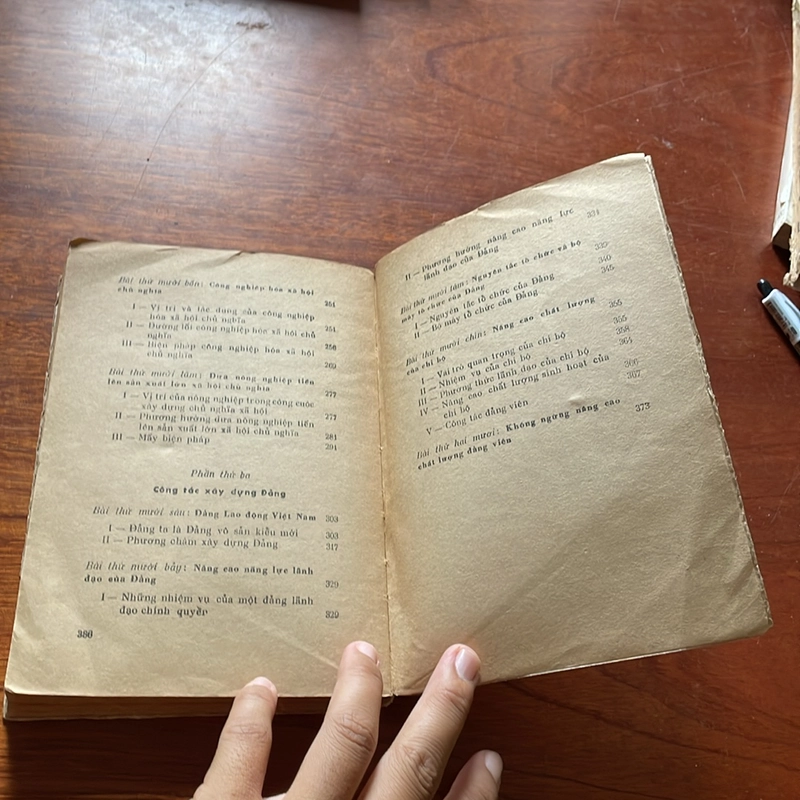 Bài thứ mười bốn: Công nghiệp hóa xã hội
chủ nghĩa 251
I — Vị trí và tác dụng của công nghiệp
hóa xã hội chủ nghĩa 251
II — Đường lối công nghiệp hóa xã hội chủ
nghĩa 256
III — Biện pháp công nghiệp hóa xã hội
chủ nghĩa 269
Bài thứ mười lăm: Đưa nông nghiệp tiến
lên sản xuất lớn xã hội chủ nghĩa 277
I — Vị trí của nông nghiệp trong công cuộc
xây dựng chủ nghĩa xã hội 277
II — Phương hướng đưa nông nghiệp tiến
lên sản xuất lớn xã hội chủ nghĩa 281
III — Mấy biện pháp 291
Phần thứ ba
Công tác xây dựng Đảng
Bài thứ mười sáu: Đảng Lao động Việt Nam 303
I — Đảng ta là Đảng vô sản kiểu mới 303
II — Phương châm xây dựng Đảng 317
Bài thứ mười bảy: Nâng cao năng lực lãnh
đạo của Đảng 329
I — Những nhiệm vụ của một đảng lãnh
đạo chính quyền 329
386
II — Phương hướng nâng cao năng lực
lãnh đạo của Đảng 331
Bài thứ mười tám: Nguyên tắc tổ chức và bộ
máy tổ chức của Đảng
I — Nguyên tắc tổ chức của Đảng 340
II — Bộ máy tổ chức của Đảng 345
Bài thứ mười chín: Nâng cao chất lượng
của chi bộ 355
I — Vai trò quan trọng của chi bộ 355
II — Nhiệm vụ của chi bộ 358
III — Phương thức lãnh đạo của chi bộ 364
IV — Nâng cao chất lượng sinh hoạt của
chi bộ 366
V — Công tác đảng viên 367
Bài thứ hai mươi: Không ngừng nâng cao
chất lượng đảng viên 373